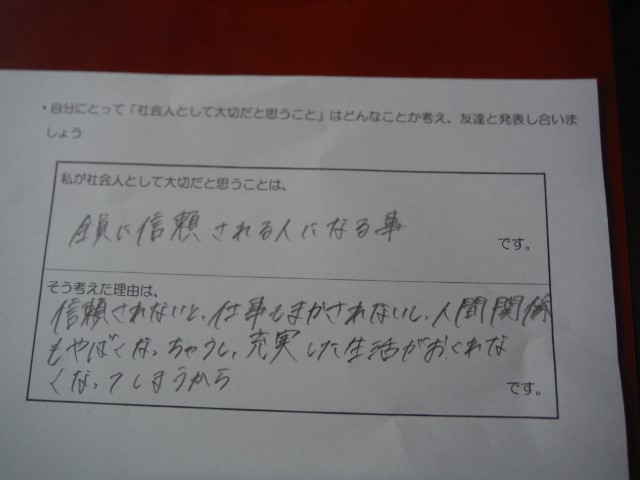 ・自分にとって「社会人として大切だと思うこと」はどんなことか考え、友達と発表し合いま
しょう
私が社会人として大切だと思うことは、
全員に信頼される人になる事
です。
そう考えた理由は、
信頼されないと、仕事もまかされないし、人間関係
もやばくなっちゃうし、充実した生活がおくれな
くなってしまうから
です。